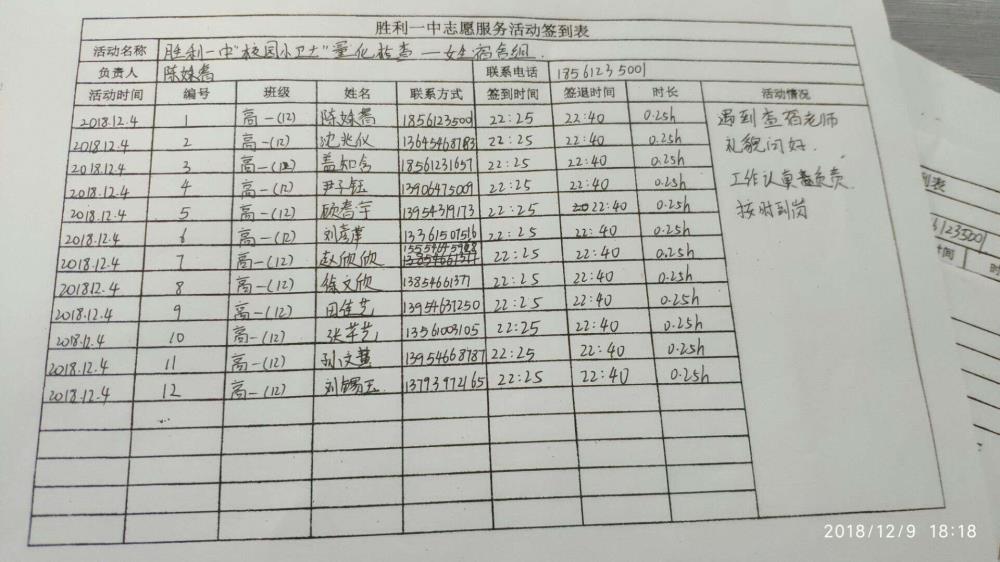 胜利一中志愿服务活动签到表
活动名称 胜利一中"校园小卫士"量化检查—女生宿舍组
负责人 陈姝蓄 联系电话 18561235001
活动时间 编号 班级 姓名 联系方式 签到时间 签退时间 时长 活动情况
2018.12.4 1 高一(12) 陈姝蓄 1856123500 22:25 22:40 0.25h 遇到查宿老师
2018.12.4 2 高一(12) 沈兆仪 13645468783 22:25 22:40 0.25h 礼貌问好.
2018.12.4 3 高一(12) 盖知含 18561231657 22:25 22:40 0.25h
2018.12.4 4 高一(12) 尹子钰 13906475009 22:25 22:40 0.25h 工作认真负责
2018.12.4 5 高一(12) 顾春宇 13954319173 22:25 22:40 0.25h 按时到岗
2018.12.4 6 高一(12) 刘彦萍 13361507516 22:25 22:40 0.25h
2018.12.4 7 高一(12) 赵欣欣 22:25 22:40 0.25h
201812.4 8 高一(12) 徐文欣 13854661371 22:25 22:40 0.25h
2018.12.4 9 高一(12) 田佳艺 13954637250 22:25 22:40 0.25h
2018.12.4 10 高一(12) 张芊艺 13561003105 22:25 22:40 0.25h
2018.12.4 11 高一(12) 孙文慧 13954668787 22:25 22:40 0.25h
2018.12.4 12 高一(12) 刘锡玉 13793972165 22:25 22:40 0.25h
...
到表
61235001
时间 时
2018/12/9 18:18